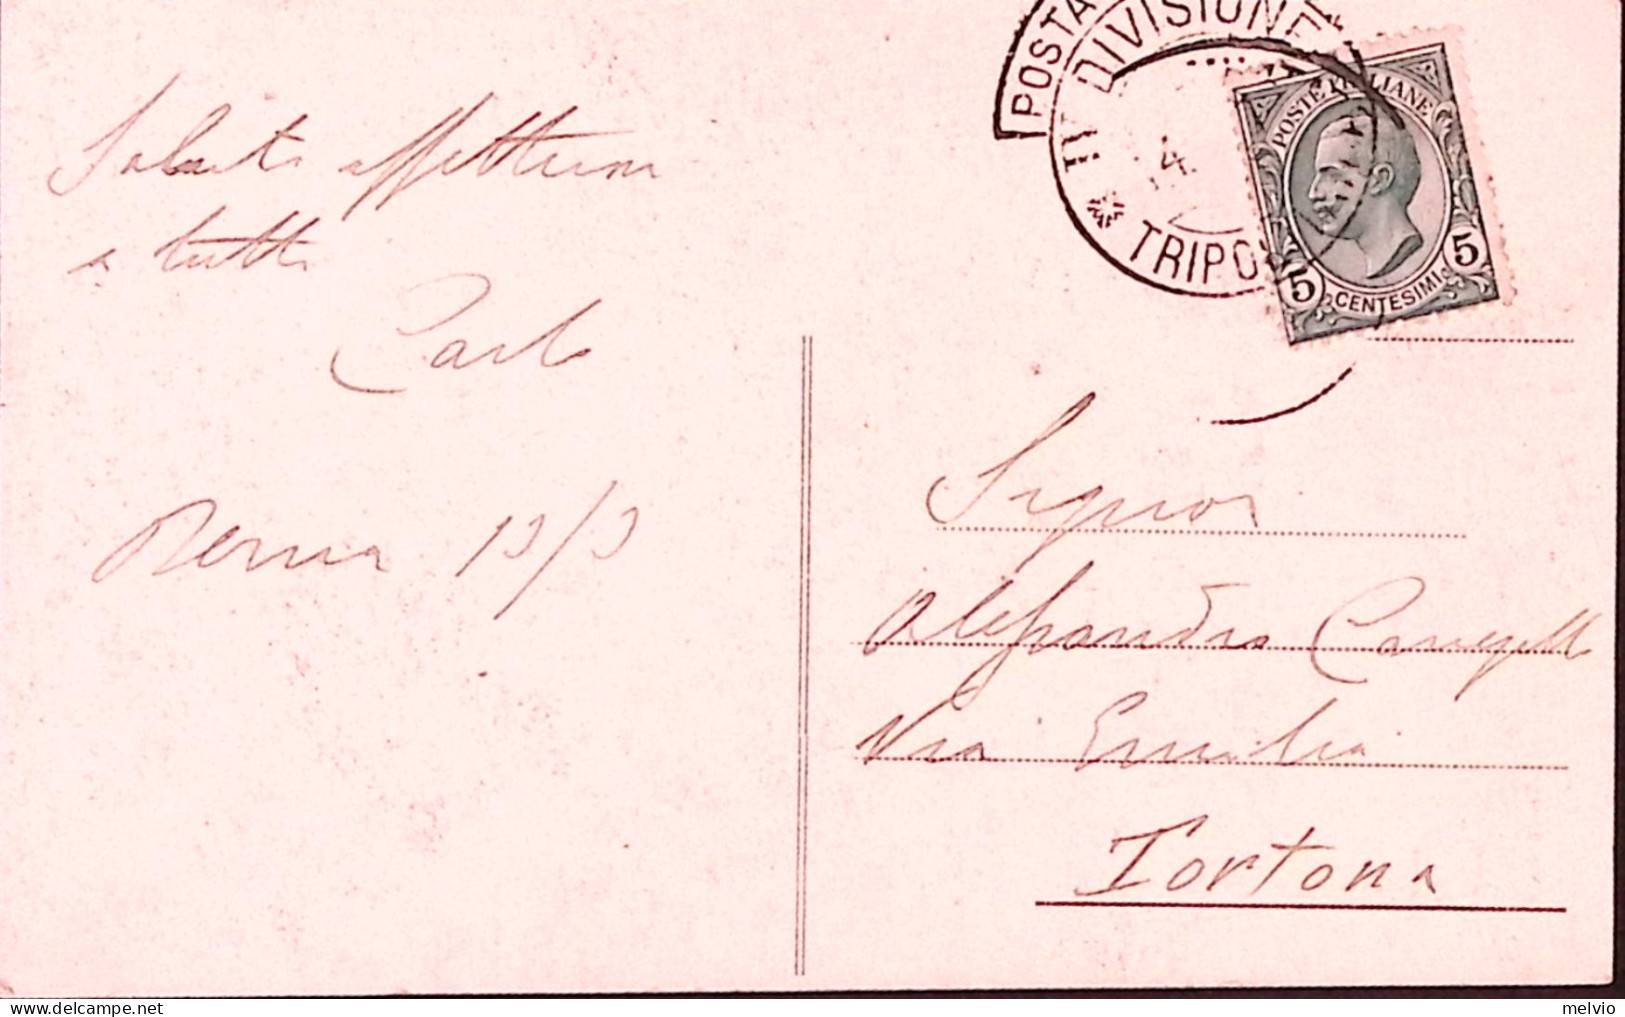 POSTA
II DIVISIONE
4
TRIPO
POSTE ITALIANE
5 CENTESIMI 5
Saluti affettuosi
a tutti
Carlo
13/3
Signor
Alessandro
Via Emilia
Tortona
melvio